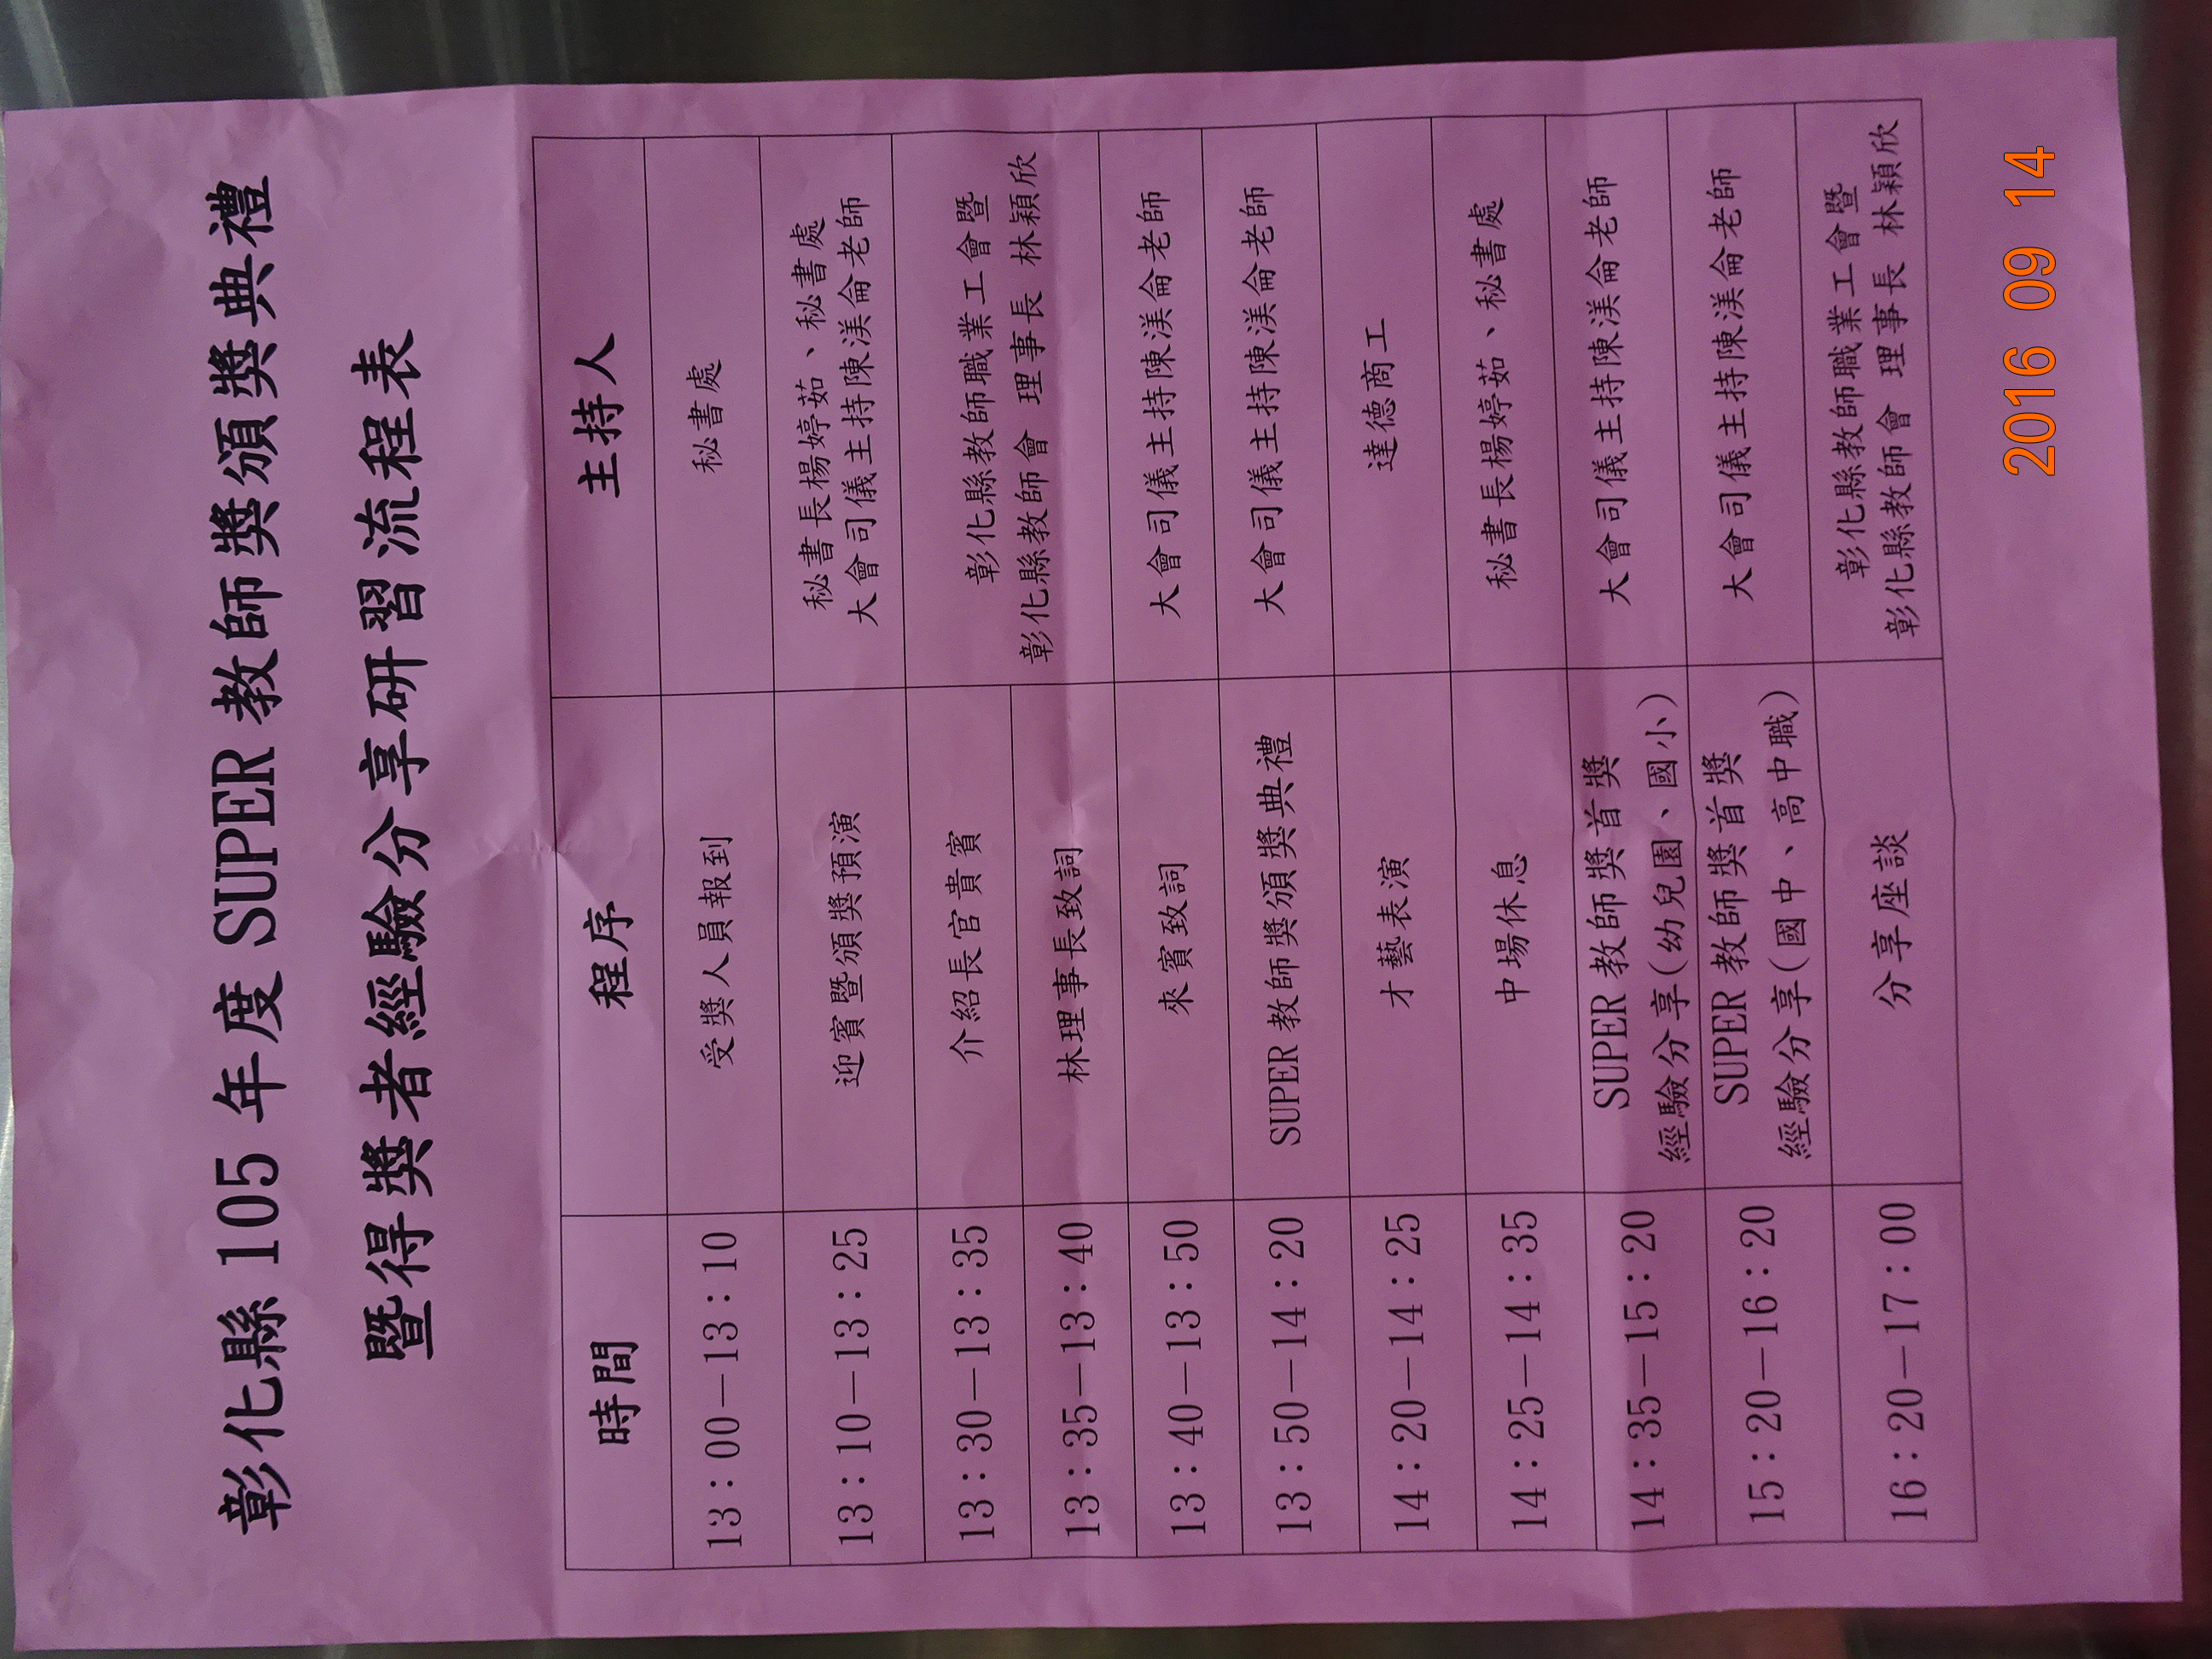 彰化縣 105 年度 SUPER 教師獎頒獎典禮
暨得獎者經驗分享研習流程表
時間 程序 主持人
13:00－13:10 受獎人員報到 秘書處
13:10－13:25 迎賓暨頒獎預演 秘書長楊婷茹、秘書處
大會司儀主持陳渼倫老師
13:30－13:35 介紹長官貴賓 彰化縣教師職業工會暨
彰化縣教師會 理事長 林穎欣
13:35－13:40 林理事長致詞
13:40－13:50 來賓致詞 大會司儀主持陳渼倫老師
13:50－14:20 SUPER 教師獎頒獎典禮 大會司儀主持陳渼倫老師
14:20－14:25 才藝表演 達德商工
14:25－14:35 中場休息 秘書長楊婷茹、秘書處
14:35－15:20 SUPER 教師獎首獎 大會司儀主持陳渼倫老師
經驗分享(幼兒園、國小)
15:20－16:20 SUPER 教師獎首獎 大會司儀主持陳渼倫老師
經驗分享(國中、高中職)
16:20－17:00 分享座談 彰化縣教師職業工會暨
彰化縣教師會 理事長 林穎欣
2016 09 14